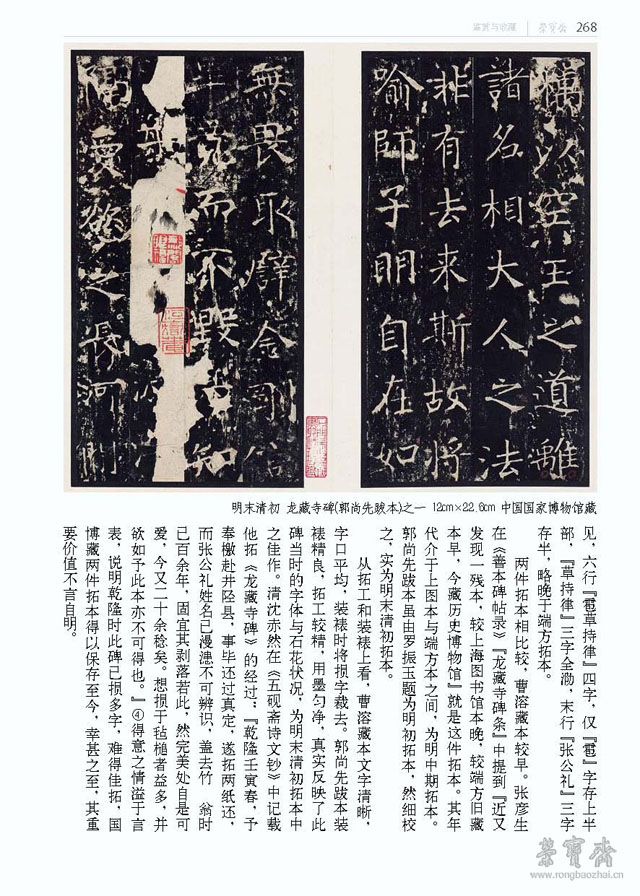 鉴赏与收藏 荣宝斋 268
橫以空王之道離
諸名相大人之法
非有去来斯故将
喻師子明自在如
無畏取辟金剛信
而不毀
隔愛欲之長河
明末清初 龙藏寺碑(郭尚先跋本)之一 12cm×22.6cm 中国国家博物馆藏
见，六行『雹草持律』四字，仅『雹』字存上半
部，『草持律』三字全泐，末行『张公礼』三字
存半，略晚于端方拓本。
两件拓本相比较，曹溶藏本较早。张彦生
在《善本碑帖录》『龙藏寺碑条』中提到『近又
发现一残本，较上海图书馆本晚，较端方旧藏
本早，今藏历史博物馆』就是这件拓本。其年
代介于上图本与端方本之间，为明中期拓本。
郭尚先跋本虽由罗振玉题为明初拓本，然细校
之，实为明末清初拓本。
从拓工和装裱上看，曹溶藏本文字清晰，
字口平均，装裱时将损字裁去。郭尚先跋本装
裱精良，拓工较精，用墨匀净，真实反映了此
碑当时的字体与石花状况，为明末清初拓本中
之佳作。清沈赤然在《五砚斋诗文钞》中记载
他拓《龙藏寺碑》的经过：『乾隆壬寅春，予
奉檄赴井陉县，事毕还过真定，遂拓两纸还，
而张公礼姓名已漫漶不可辨识，盖去竹 翁时
已百余年，固宜其剥落若此，然完美处自是可
爱，今又二十余稔矣。想损于毡槌者益多，并
欲如予此本亦不可得也。』④得意之情溢于言
表，说明乾隆时此碑已损多字，难得佳拓，国
博藏两件拓本得以保存至今，幸甚之至，其重
要价值不言自明。
荣宝斋
www.rongbaozhai.cn